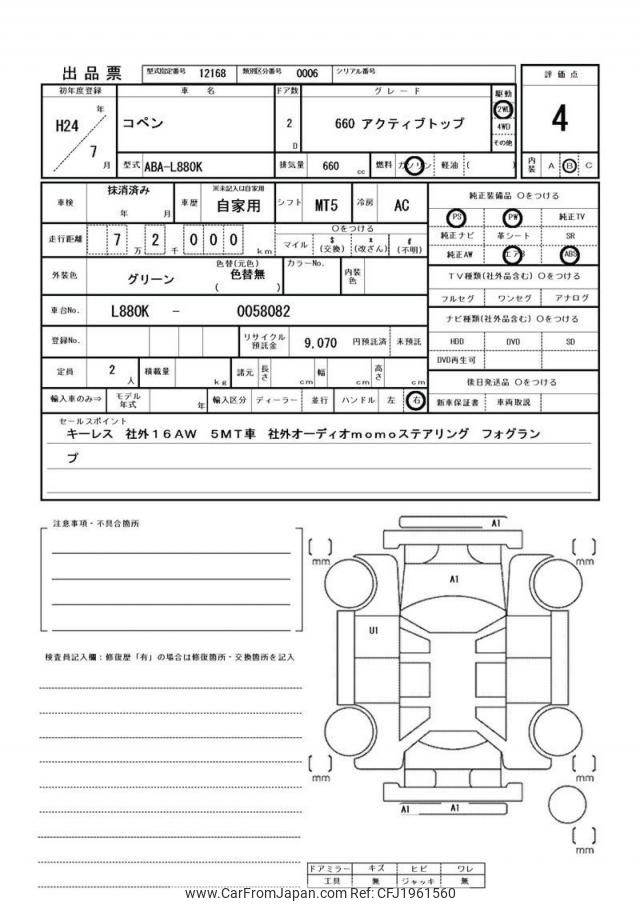 出品票 型式指定番号 12168 類別区分番号 0006 シリアル番号
評価点
4
内装 A B C
初年度登録 車名 ドア数 グレード 駆動
H24 年 / 7 月
コペン 2 D 660 アクティブトップ
2WD
4WD
その他
型式 ABA-L880K 排気量 660 cc 燃料 ガソリン 軽油 ( )
車検 抹消済み 年 月 車歴 ※未記入は自家用 自家用 シフト MT5 冷房 AC
走行距離 7 万 2 千 0 0 0 km
○をつける
マイル $ (交換) x (改ざん) # (不明)
外装色 グリーン 色替(元色) 色替無 ( ) カラーNo. 内装色
車台No. L880K - 0058082
登録No. リサイクル預託金 9,070 円預託済 未預託
定員 2 人 積載量 kg 諸元 長さ cm 幅 cm 高さ cm
輸入車のみ⇒ モデル年式 年 輸入区分 ディーラー 並行 ハンドル 左 右
純正装備品 ○をつける
PS PW 純正TV
純正ナビ 革シート SR
純正AW エアB ABS
TV種類(社外品含む) ○をつける
フルセグ ワンセグ アナログ
ナビ種類(社外品含む) ○をつける
HDD DVD SD
DVD再生可
後日発送品 ○をつける
新車保証書 車両取説
セールスポイント
キーレス 社外16AW 5MT車 社外オーディオmomoステアリング フォグラン
プ
注意事項・不具合箇所
検査員記入欄:修復歴「有」の場合は修復箇所・交換箇所を記入
A1
[ ] mm
[ ] mm
A1
U1
[ ] mm
[ ] mm
A1 A1
[ ] mm
ドアミラー キズ ヒビ ワレ
工具 無 ジャッキ 無
www.CarFromJapan.com Ref: CFJ1961560